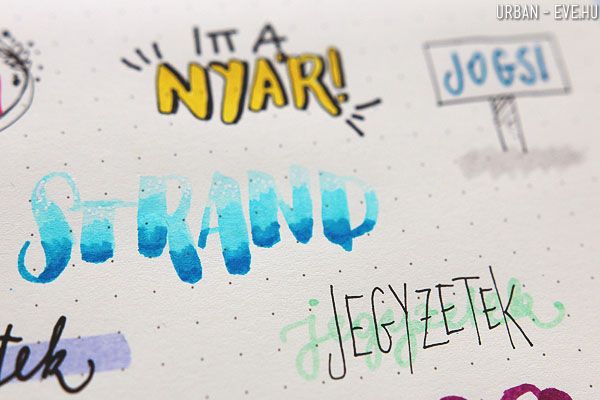 URBAN - EVE.HU
ITT A
NYÁR!
JOGSI
STRAND
JEGYZETEK
jegyzetek